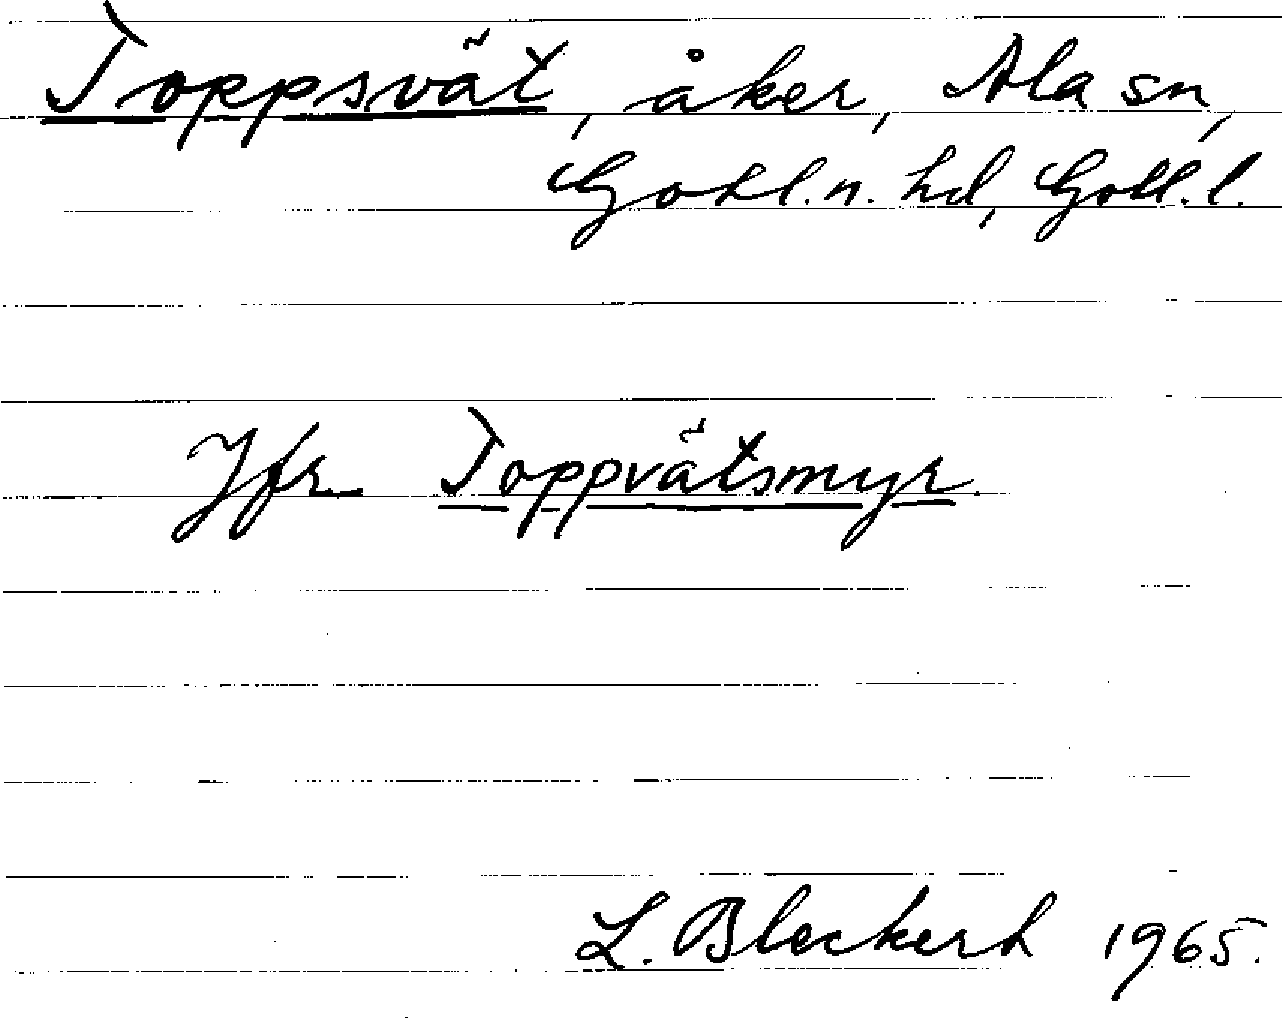 Toppsvät, åker, Ala sn,
Gotl. n. hd, Gotl. l.
Jfr Toppvätsmyr.
L. Bleckert 1965.